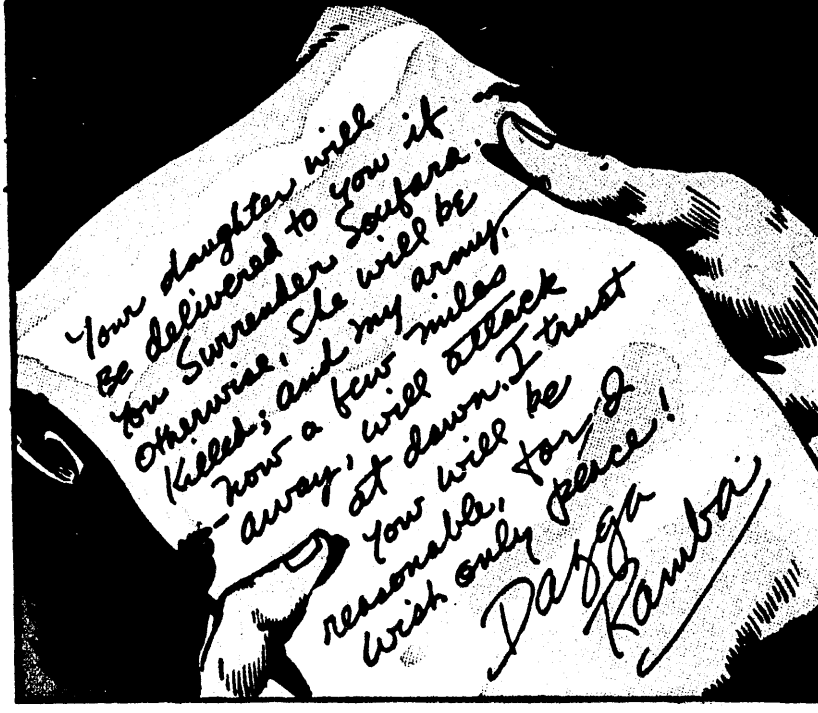 Your daughter will
Be delivered to you if
You Surrender Soufara.
Otherwise, She will be
Killed; and my army,
now a few miles
away, will attack
at dawn. I trust
You will be
reasonable, for I
wish only peace!
Dazga
Ramba